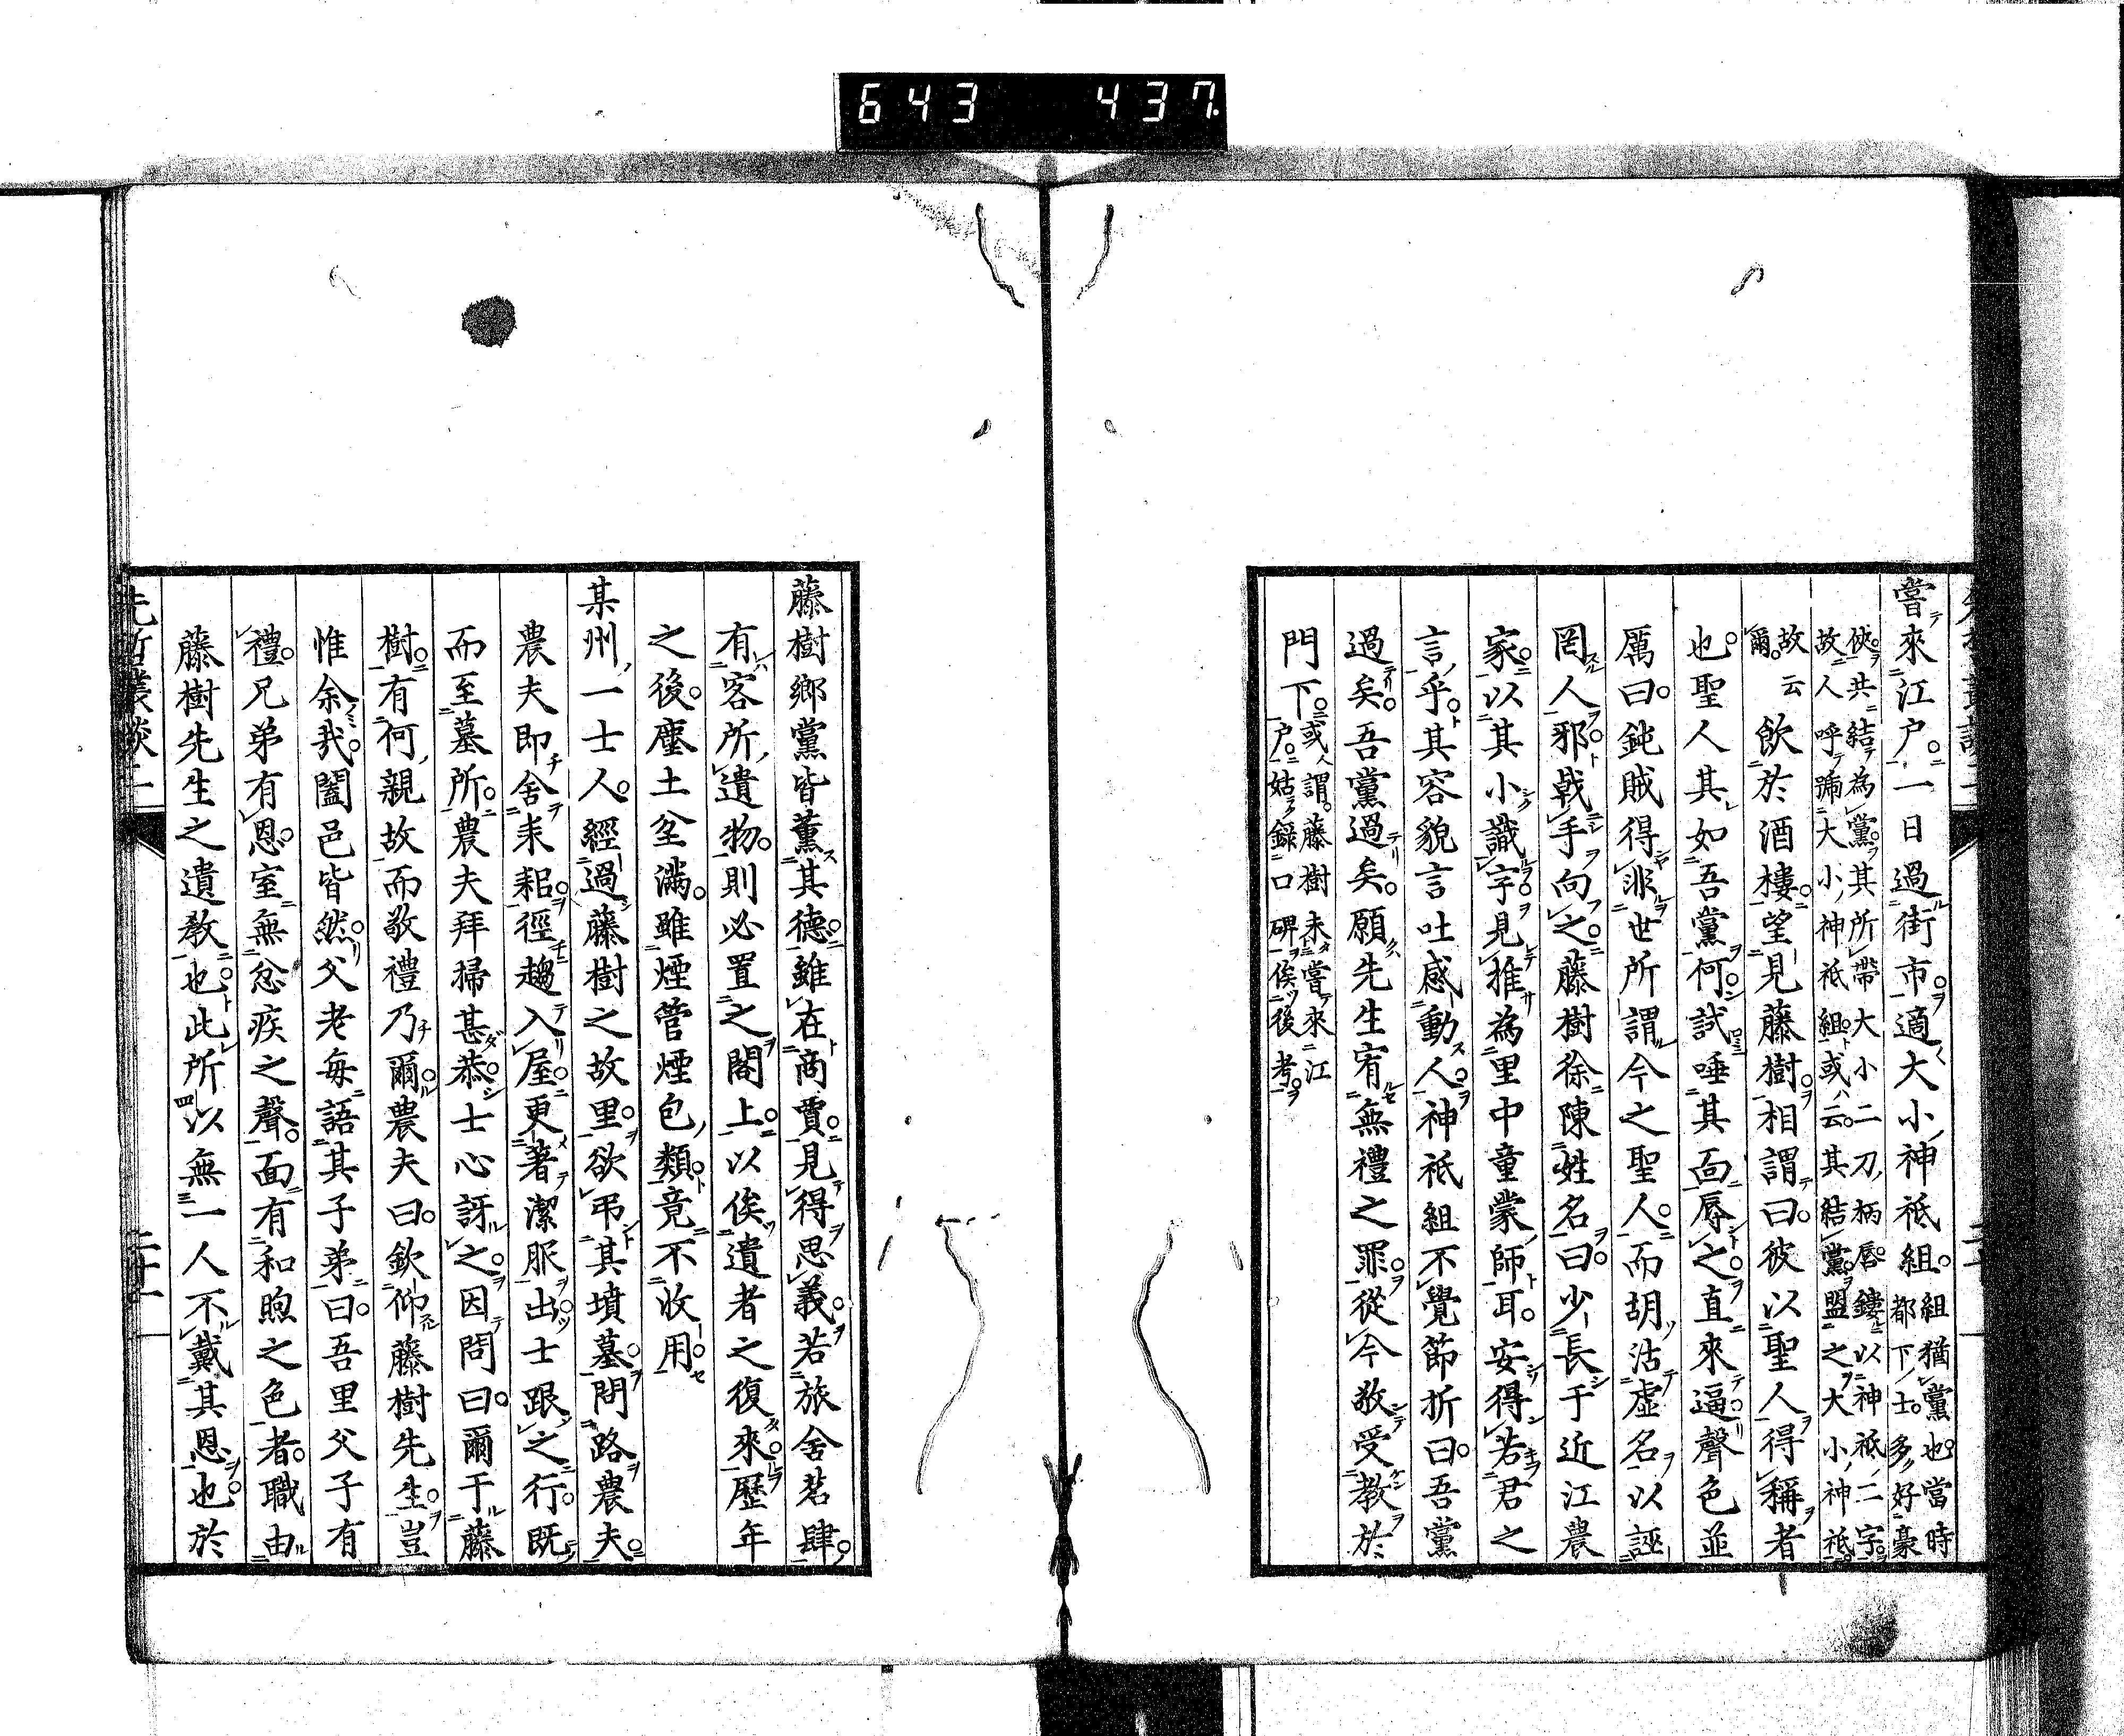 643 437
嘗來江戶。一日過街市。適大小神祇組。組猶黨也。當時都下士。多好豪
俠。共結為黨。其所帶大小二刀。柄唇鏤以神祇二字。故人呼號大小神祇組。或云。其結黨盟之大小神祇。
故云爾。飲於酒樓。望見藤樹。相謂曰。彼以聖人得稱者
也。聖人其如吾黨何。試唾其面辱之。直來逼。聲色並
厲曰。鈍賊得非世所謂今之聖人。而胡沽虛名。以誣
罔人邪。戟手向之。藤樹徐陳姓名曰。少長于近江農
家。以其小識字。見推為里中童蒙師耳。安得若君之
言乎。其容貌言吐感動人。神祇組不覺節折曰。吾黨
過矣。吾黨過矣。願先生宥無禮之罪。從今敬受教於
門下。或謂。藤樹未嘗來江戶。姑錄口碑。俟後考。
藤樹鄉黨皆薰其德。雖在商賈。見得思義。若旅舍茗肆。
有客所遺物。則必置之閣上。以俟遺者之復來。歷年
之後。塵土坌滿。雖煙管煙包類。竟不收用。
某州一士人。經過藤樹之故里。欲弔其墳墓。問路農夫。
農夫即舍耒耜。徑趨入屋。更著潔服出。士跟之行。既
而至墓所。農夫拜掃甚恭。士心訝之。因問曰。爾于藤
樹。有何親故。而敬禮乃爾。農夫曰。欽仰藤樹先生。豈
惟余哉。闔邑皆然。父老每語其子弟曰。吾里父子有
禮。兄弟有恩。室無忿疾之聲。面有和煦之色者。職由
藤樹先生之遺教也。此所以無一人不戴其恩也。於
先哲叢談二
二十一